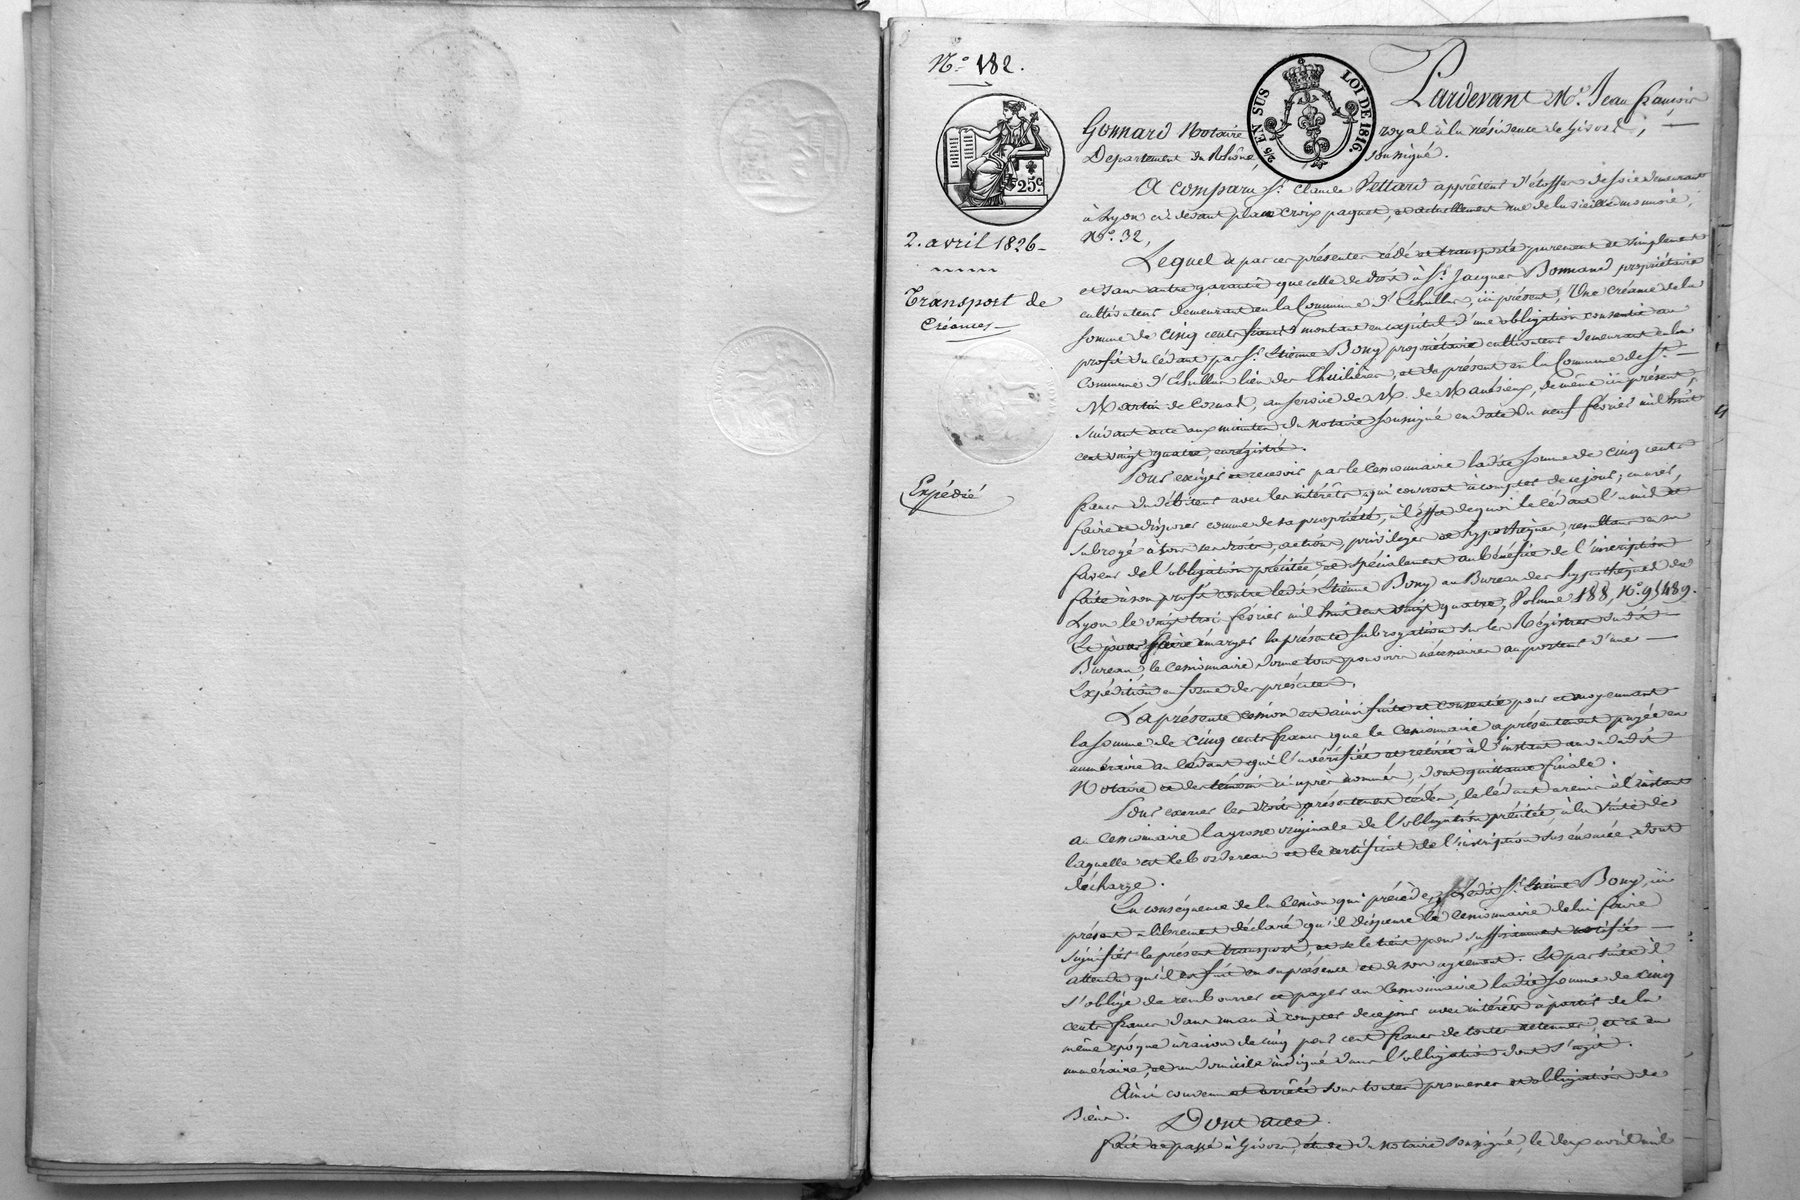 N.o 182.
2/5 EN SUS
LOI DE 1816.
25c
2. avril 1826
Transport de
Créances
Expédié
Pardevant M.e Jean françois
Gonnard Notaire royal à la résidence de Givors,
Département du Rhône, soussigné.
A comparu S.r Claude Pettard apprêteur d'étoffes de soie demeurant
à Lyon ci-devant place Croix paquet, et actuellement rue de la vieille monnaie,
N.o 32,
Lequel a par ces présentes cédé et transporté purement et simplement
et sans autre garantie que celle de droit à S.r Jacques Bonnand propriétaire
cultivateur demeurant en la Commune d'Echallas, ici présent, Une créance de la
somme de cinq cents francs montant en capital d'une obligation consentie au
profit du cédant par S.r Etienne Bony propriétaire cultivateur demeurant en la
Commune d'Echallas lieu des Thuilières, et de présent en la Commune de S.t
Martin de Cornas, au service de M. de, de même ici présent,
suivant acte aux minutes du notaire soussigné en date du neuf février mil huit
cent vingt quatre, enrégistré.
Pour exiger et recevoir par le Cessionnaire ladite somme de cinq cents
francs du débiteur avec les intérêts qui courront à compter de ce jour; en user,
faire et disposer comme de sa propriété, à l'effet de quoi le cédant l'a mis et
subrogé à tous ses droits, actions, privilèges et hypothèques, résultans en sa
faveur de l'obligation précitée et spécialement au bénéfice de l'inscription
faite à son profit contre ledit Etienne Bony au Bureau des hypothèques de
Lyon le vingt trois février mil huit cent vingt quatre, Volume 188, N.o 489.
Et pour faire émarger la présente subrogation sur les Régistres dudit
Bureau, le Cessionnaire donne tous pouvoirs nécessaires au porteur d'une
Expédition en forme des présentes.
La présente cession est ainsi faite et consentie pour et moyennant
la somme de cinq cents francs que le Cessionnaire a présentement payée en
numéraire au Cédant qui l'a vérifiée et retirée à l'instant au vu dudit
Notaire et des témoins ci-après nommés, dont quittance finale.
Pour exercer les droits présentement cédés, le Cédant a remis à l'instant
au Cessionnaire la grosse originale de l'obligation précitée à la suite de
laquelle est le bordereau et le certificat de l'inscription sus énoncée, dont
décharge.
En conséquence de la Cession qui précède, Ledit S.r Etienne Bony, ici
présent a librement déclaré qu'il dispense le Cessionnaire de lui faire
signifier le présent transport, et se le tient pour suffisamment notifié
attendu qu'il est fait en sa présence et de son agrément. Et par suite il
s'oblige de rembourser et payer au Cessionnaire ladite somme de cinq
cents francs dans un an à compter de ce jour avec intérêts à partir de la
même époque à raison de cinq pour cent francs de toutes retenues, et ce en
numéraire, et au domicile indiqué dans l'obligation dont s'agit.
Ainsi convenu et arrêté sous toutes promesses et obligations de
biens.
Dont acte.
fait et passé à Givors, étude du notaire soussigné, le deux avril mil